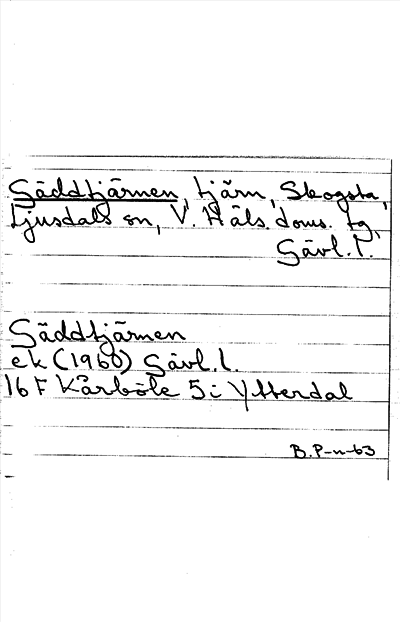 Gäddtjärnen, tjärn, Skogsta,
Ljusdals sn, V. Häls. doms. tg,
Gävl. l.
Gäddtjärnen
ek (1960) Gävl. l.
16 F Kårböle 5i Ytterdal
B. P-n-63